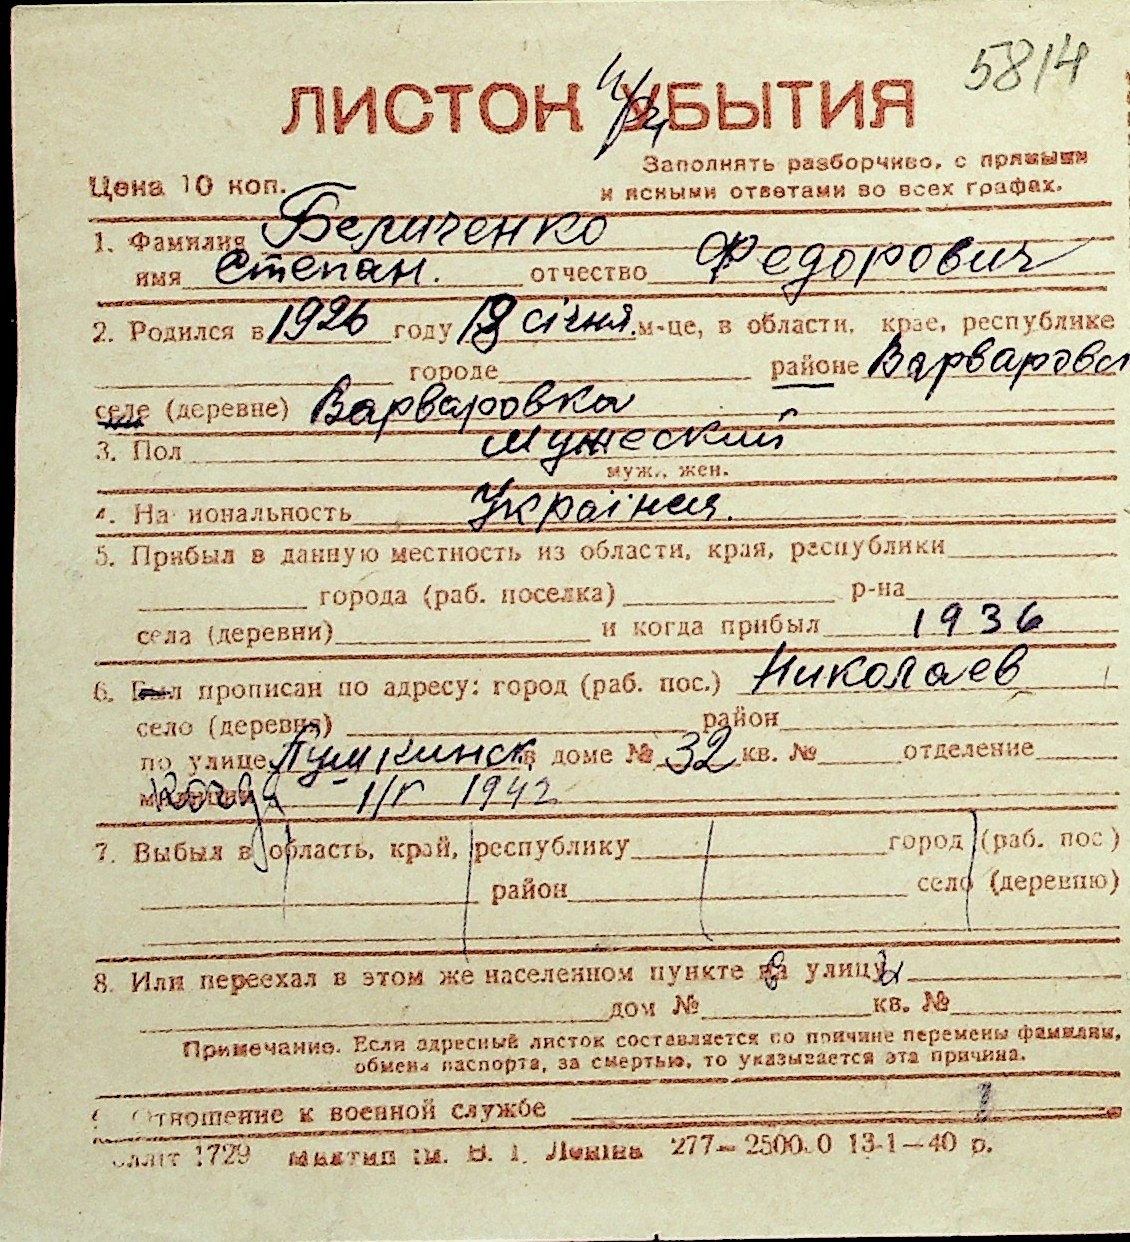 5814
ЛИСТОК УБЫТИЯ
Заполнять разборчиво, с прямыми
и ясными ответами во всех графах.
Цена 10 коп.
1. Фамилия Беличенко
имя Степан. отчество Федорович
2. Родился в 1926 году 19 січня м-це, в области, крае, республике
городе районе Варваровс
селе (деревне) Варваровка
3. Пол Мужеский
муж., жен.
4. Национальность Українец.
5. Прибыл в данную местность из области, края, республики
города (раб. поселка) р-на
села (деревни) и когда прибыл 1936
6. Был прописан по адресу: город (раб. пос.) Николаев
село (деревня) район
по улице Пушкинск в доме № 32 кв. № отделение
милиции 1942
7. Выбыл в область, край, республику город (раб. пос)
район село (деревню)
8. Или переехал в этом же населенном пункте на улицу
дом № кв. №
Примечание. Если адресный листок составляется по причине перемены фамилии,
обмена паспорта, за смертью, то указывается эта причина.
9. Отношение к военной службе 1
1729 им. В. І. Леніна 277—2500.0 13-1—40 р.